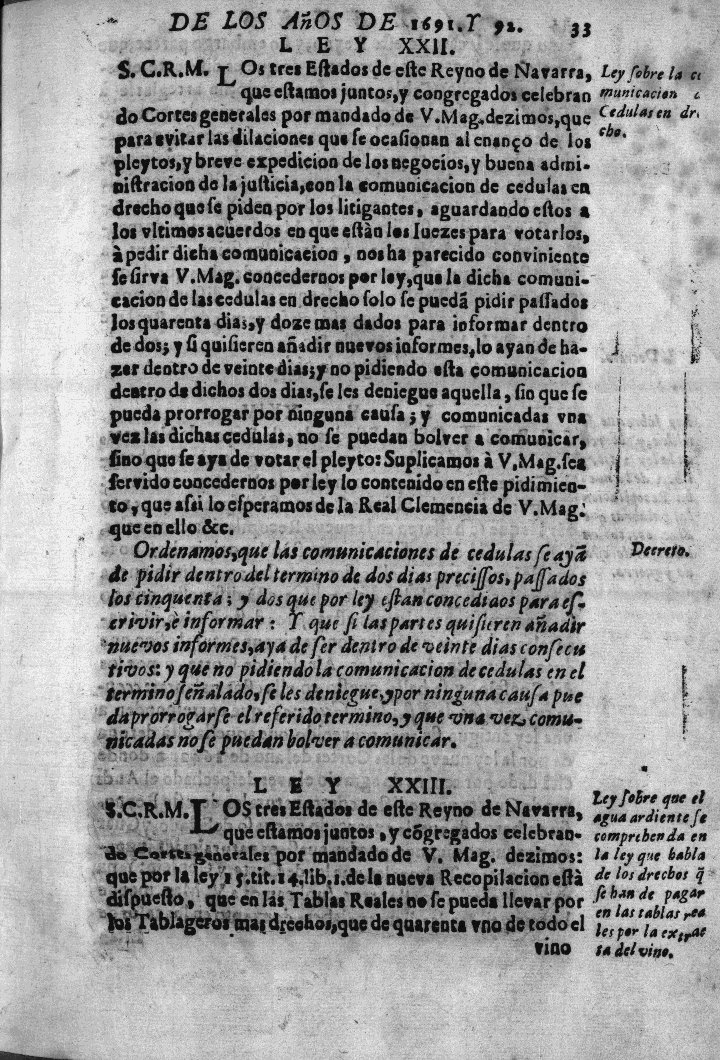 DE LOS AñOS DE 1691. Y 92. 33
L E Y XXII.
S. C. R. M. LOs tres Estados de este Reyno de Navarra,
que estamos juntos, y congregados celebran
do Cortes generales por mandado de V. Mag. dezimos, que
para evitar las dilaciones que se ocasionan al enanço de los
pleytos, y breve expedicion de los negocios, y buena admi-
nistracion de la justicia, con la comunicacion de cedulas en
drecho que se piden por los litigantes, aguardando estos a
los vltimos acuerdos en que estàn los Iuezes para votarlos,
à pedir dicha comunicacion, nos ha parecido conviniente
se sirva V. Mag. concedernos por ley, que la dicha comuni-
cacion de las cedulas en drecho solo se puedã pidir passados
los quarenta dias, y doze mas dados para informar dentro
de dos; y si quisieren añadir nuevos informes, lo ayan de ha-
zer dentro de veinte dias; y no pidiendo esta comunicacion
dentro de dichos dos dias, se les deniegue aquella, sin que se
pueda prorrogar por ninguna causa; y comunicadas vna
vez las dichas cedulas, no se puedan bolver a comunicar,
sino que se aya de votar el pleyto: Suplicamos à V. Mag. sea
servido concedernos por ley lo contenido en este pidimien-
to, que assi lo esperamos de la Real Clemencia de V. Mag.
que en ello &c.
Ordenamos, que las comunicaciones de cedulas se ayã
de pidir dentro del termino de dos dias precissos, passados
los cinquenta; y dos que por ley estan concedidos para es-
crivir, è informar: Y que si las partes quisieren añadir
nuevos informes, aya de ser dentro de veinte dias consecu
tivos: y que no pidiendo la comunicacion de cedulas en el
termino señalado, se les deniegue, y por ninguna causa pue
da prorrogarse el referido termino, y que vna vez comu-
nicadas no se puedan bolver a comunicar.
L E Y XXIII.
S. C. R. M. LOS tres Estados de este Reyno de Navarra,
que estamos juntos, y cõgregados celebran-
do Cortes generales por mandado de V. Mag. dezimos:
que por la ley 15. tit. 14. lib. 1. de la nueva Recopilacion està
dispuesto, que en las Tablas Reales no se pueda llevar por
los Tablageros mas drechos, que de quarenta vno de todo el
vino
Ley sobre la co
municacion
Cedulas en dre
cho.
Decreto.
Ley sobre que el
agua ardiente se
comprehenda en
la ley que habla
de los drechos q̃
se han de pagar
en las tablas rea
les por la extrac
ta del vino.